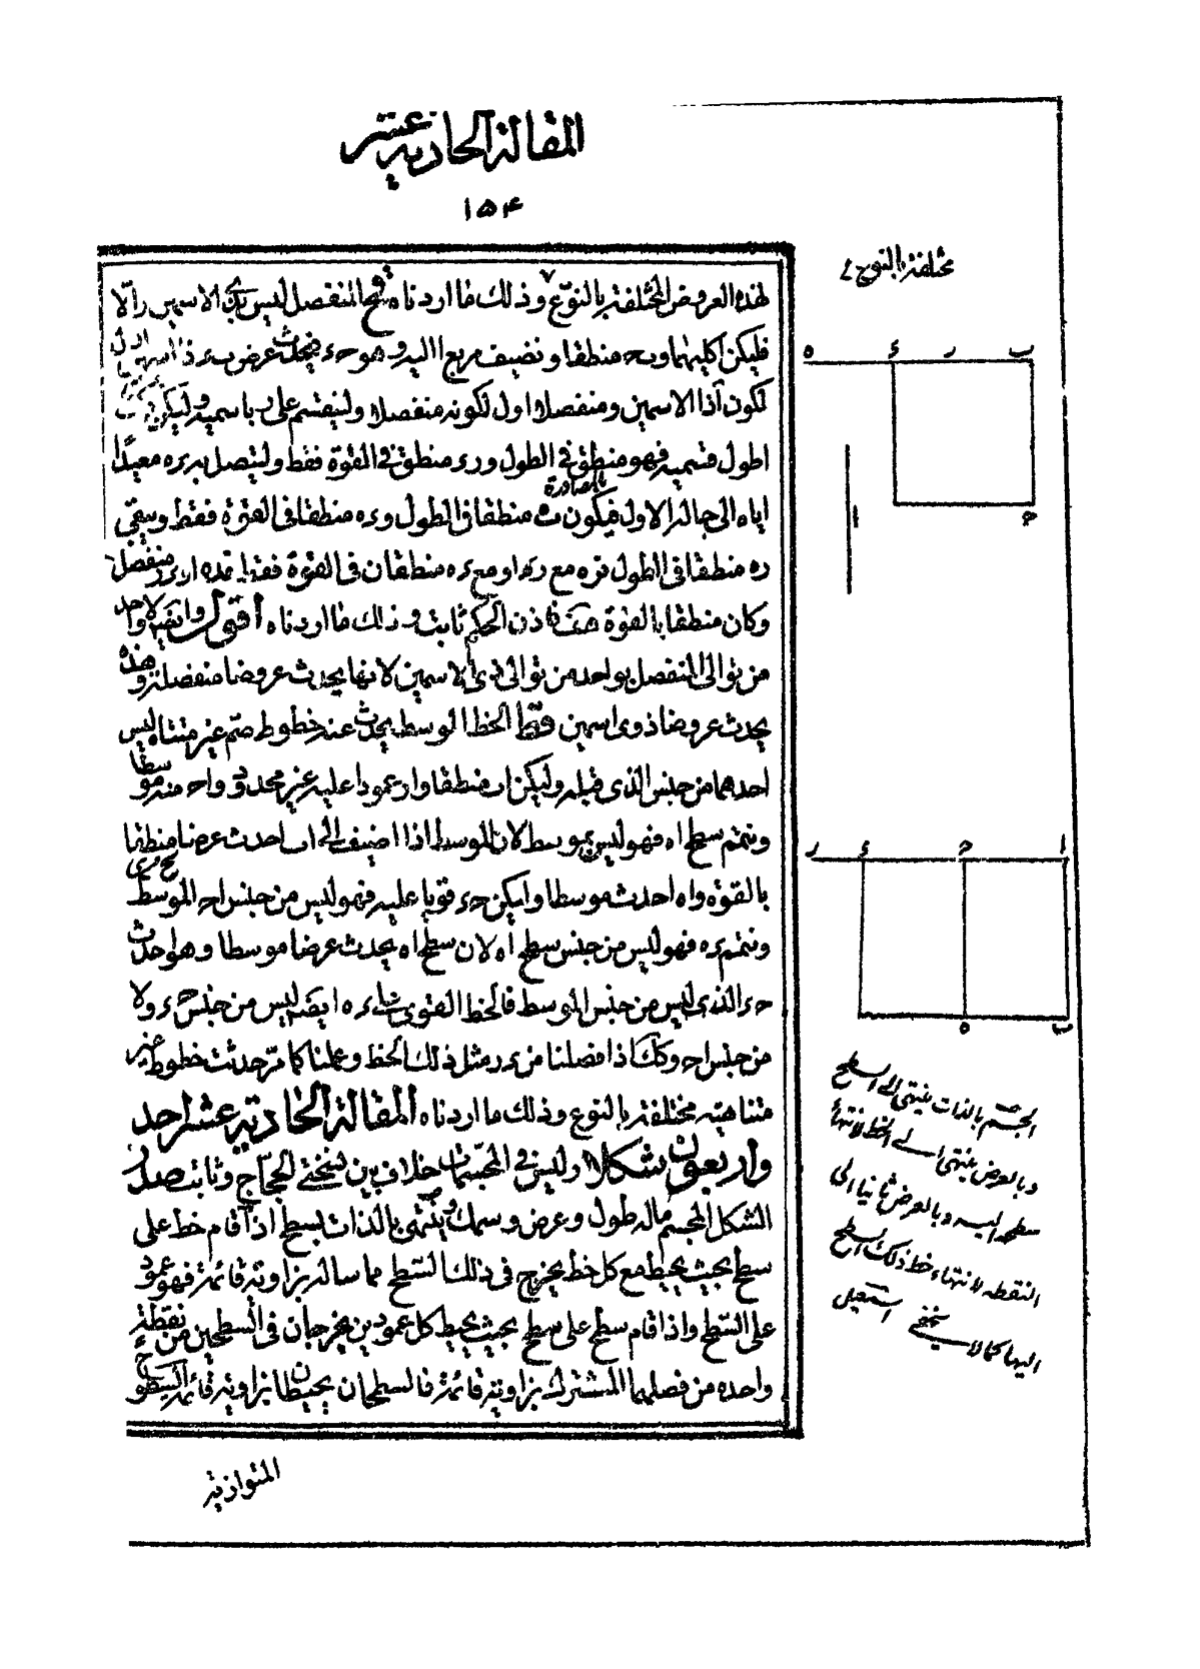 المقالة الحادية عشر
١٥٤
مختلفة بالنوع
لهذه العروض المختلفة بالنوع وذلك ما اردناه المنفصل ليس بذى الاسمين والا
فليكن اكليهما و ب ح منطقا ونضيف مربع ا اليه وهو ح ء فيحدث عرض ب ء ذا اسمين
لكون ا ذا الاسمين ومنفصلا اول لكونه منفصلا ولينقسم على ر باسميه وليكن
اطول قسميه فهو منطق فى الطول و ر ء منطق فى القوة فقط وليتصل به ء ه معيدا
اياه الى حاله الاول فيكون ب ه منطقا فى الطول و ء ه منطقا فى القوة فقط ويبقى
ر ه منطقا فى الطول
وكان منطقا بالقوة هف فاذن الحكم ثابت وذلك ما اردناه اقول وايضا لا واحد
من توالى المنفصل بواحد من توالى ذى الاسمين لانها يحدث عروضا منفصلة وهذه
يحدث عروضا ذوى اسمين الخط الموسط يحدث عنه خطوط صم غير متناه ليس
احدهما من جنس الذى قبله وليكن ا ب منطقا و ا ر عمودا عليه غير محدود و ا ح منه موسطا
ونتمم سطح ا ه فهو ليس بموسط لان الموسط اذا اضيف الى ا ب احدث عرضا منطقا
بالقوة و ا ه احدث موسطا وليكن ح ء قويا عليه فهو ليس من جنس ا ح الموسط
ونتمم ء ه فهو ليس من جنس سطح ا ه لان سطح ا ه يحدث عرضا موسطا وهو احدث
ح ء الذى ليس من جنس الموسط فالخط القوى على ء ه ايضا ليس من جنس ح ء ولا
من جنس ا ح وكك اذا فصلنا من ء ر مثل ذلك الخط وعملنا كما مر حدثت خطوط غير
متناهية مختلفة بالنوع وذلك ما اردناه المقالة الحادية عشر احد
واربعون شكلا وليس فى المجسمات خلاف بين نسختى الحجاج وثابت صدر
الشكل المجسم ماله طول وعرض وسمك وينتهى بالذات بسطح اذا قام خط على
سطح بحيث يحيط مع كل خط يخرج فى ذلك السطح مما ساله بزاوية قائمة فهو عمود
على السطح واذا قام سطح على سطح بحيث يحيط كل عمودين يخرجان فى السطحين من نقطة
واحده من فصلهما المشترك بزاوية قائمة فالسطحان يحيطان بزاوية قائمة السطوح
المتوازية
ه ء ر ب
ا
ح
ر ء ح ا
ه ب
الجسم بالذات ينتهى الى السطح
وبالعرض ينتهى الى الخط لانتهاء
سطحه اليه وبالعرض ثانيا الى
النقطه لانتهاء خط ذلك السطح
اليها كما لا يخفى